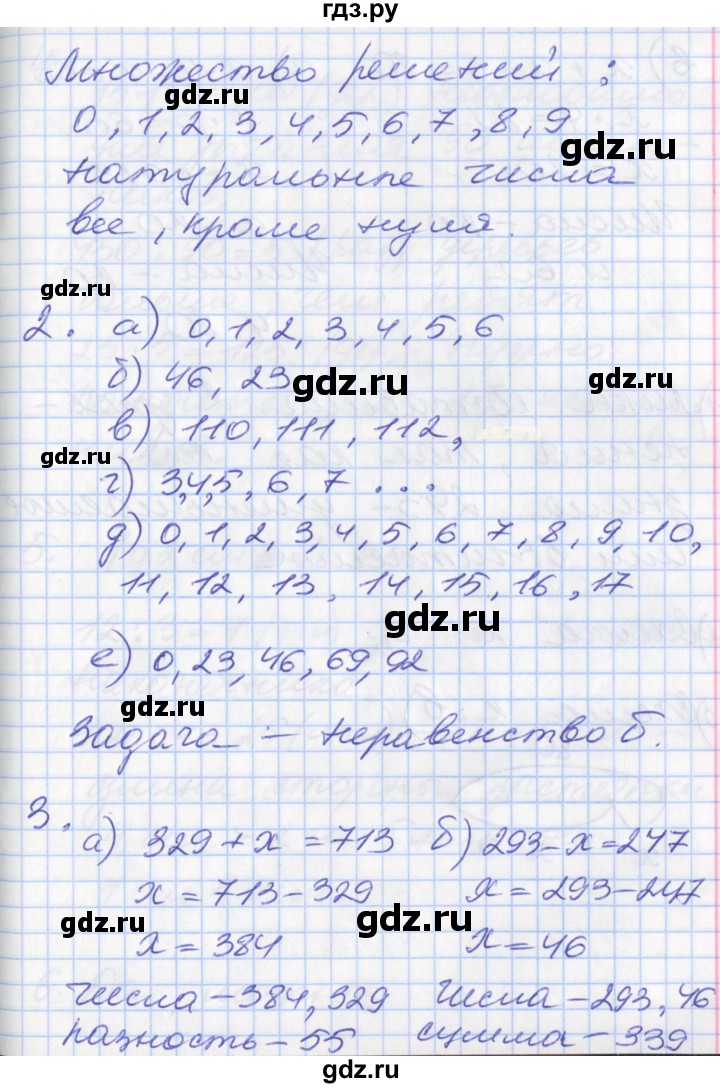 гдз.ру
Множество решений :
gdz.ru
0, 1, 2, 3, 4, 5, 6, 7, 8, 9
gdz.ru
натуральные числа
все, кроме нуля.
gdz.ru
2. а) 0, 1, 2, 3, 4, 5, 6
б) 46, 23
gdz.ru gdz.ru
в) 110, 111, 112,
gdz.ru
г) 3,4,5, 6, 7 ...
д) 0, 1, 2, 3, 4, 5, 6, 7, 8, 9, 10,
11, 12, 13, 14, 15, 16, 17
gdz.ru
е) 0, 23, 46, 69, 92
gdz.ru
Задача – неравенство б.
3. а) 329 + x = 713 б) 293 – x = 247
x = 713 – 329 x = 293 – 247
gdz.ru gdz.ru
x = 384 x = 46
числа – 384, 329 числа – 293, 46
разность – 55 сумма – 339